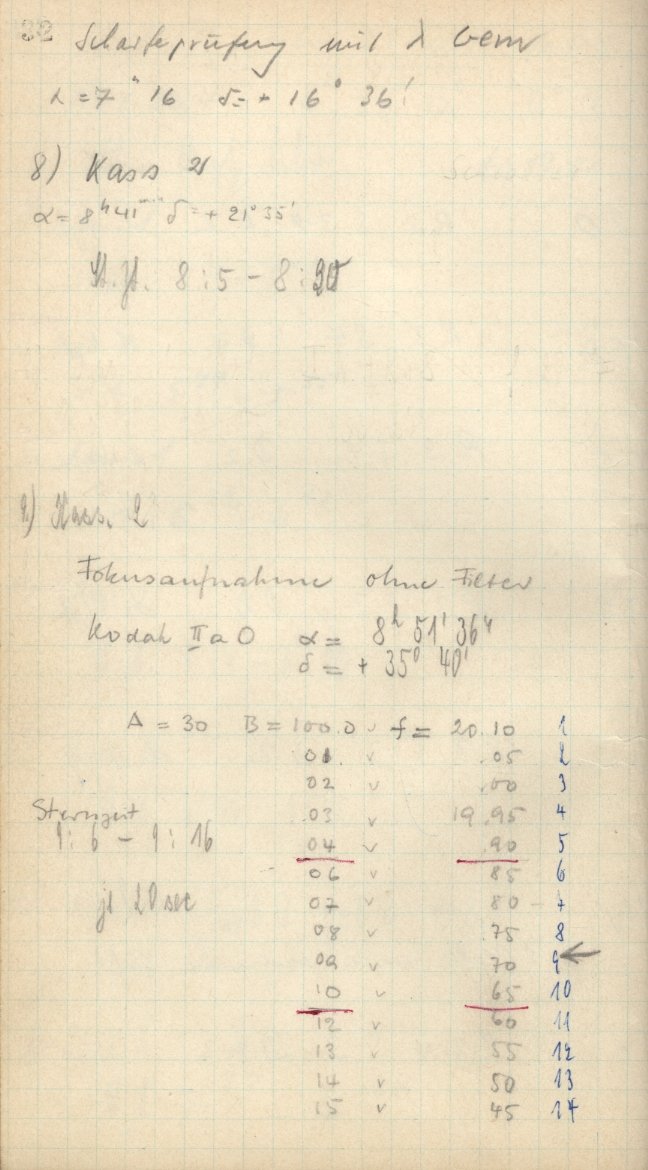 32 Schärfeprüfung mit λ Gem
α = 7h 16 δ = + 16° 36'
8) Kass 21
α = 8h 41min δ = + 21° 35'
St. Zt. 8:5 - 8:30
9) Kass. 2
Fokusaufnahme ohne Filter
Kodak IIaO α = 8h 51' 36"
δ = + 35° 40'
A = 30 B = 100.0 v f = 20.10 1
01 v .05 2
02 v .00 3
.03 v 19.95 4
04 v .90 5
Sternzeit
9:6 - 9:16
06 v 85 6
07 v 80 - 7
je 20 sec
08 v .75 8
09 70 9 ←
10 v 65 10
12 v 60 11
13 v 55 12
14 v 50 13
15 v 45 14